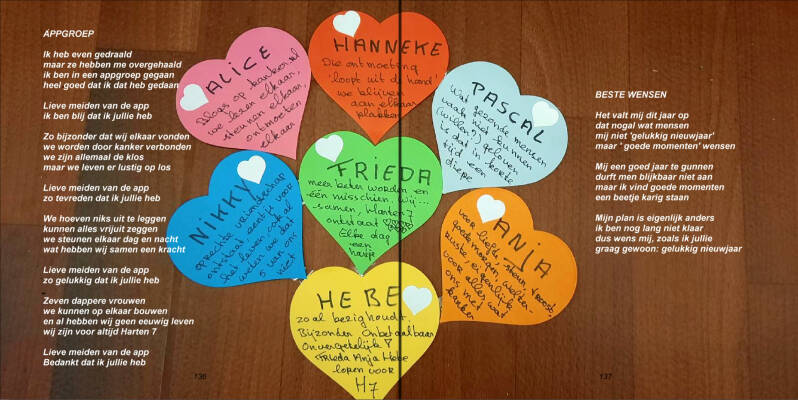 APPGROEP
Ik heb even gedraald
maar ze hebben me overgehaald
ik ben in een appgroep gegaan
heel goed dat ik dat heb gedaan
Lieve meiden van de app
ik ben blij dat ik jullie heb
Zo bijzonder dat wij elkaar vonden
we worden door kanker verbonden
we zijn allemaal de klos
maar we leven er lustig op los
Lieve meiden van de app
zo tevreden dat ik jullie heb
We hoeven niks uit te leggen
kunnen alles vrijuit zeggen
we steunen elkaar dag en nacht
wat hebben wij samen een kracht
Lieve meiden van de app
zo gelukkig dat ik jullie heb
Zeven dappere vrouwen
we kunnen op elkaar bouwen
en al hebben wij geen eeuwig leven
wij zijn voor altijd Harten 7
Lieve meiden van de app
Bedankt dat ik jullie heb
136
ALICE
Blogs op kanker.nl
we lezen elkaar,
steunen elkaar,
ontmoeten
elkaar
HANNEKE
Die ontmoeting
'loopt uit de hand'
we blijven
aan elkaar
plakken
PASCAL
Wat gezonde mensen
vaak niet kunnen
(willen) geloven
is dat in korte
tijd een
diepe
NIKKY
oprechte vriendschap
ontstaat
het leven
weten we dat
5 van ons
niet
FRIEDA
meer beter worden en
één misschien. Wij...
samen, Harten 7
ontstaat
Elke dag
een
hartje
ANJA
voor liefde, steun, troost,
goedemorgen, welte-
ruste, eigenlijk
voor alles wat
ons met
kanker
HEBE
zoal bezighoudt.
Bijzonder Onbetaalbaar
Onvergetelijk
Frieda Anja Hebe
lopen voor
H7
BESTE WENSEN
Het valt mij dit jaar op
dat nogal wat mensen
mij niet 'gelukkig nieuwjaar'
maar ' goede momenten' wensen
Mij een goed jaar te gunnen
durft men blijkbaar niet aan
maar ik vind goede momenten
een beetje karig staan
Mijn plan is eigenlijk anders
ik ben nog lang niet klaar
dus wens mij, zoals ik jullie
graag gewoon: gelukkig nieuwjaar
137